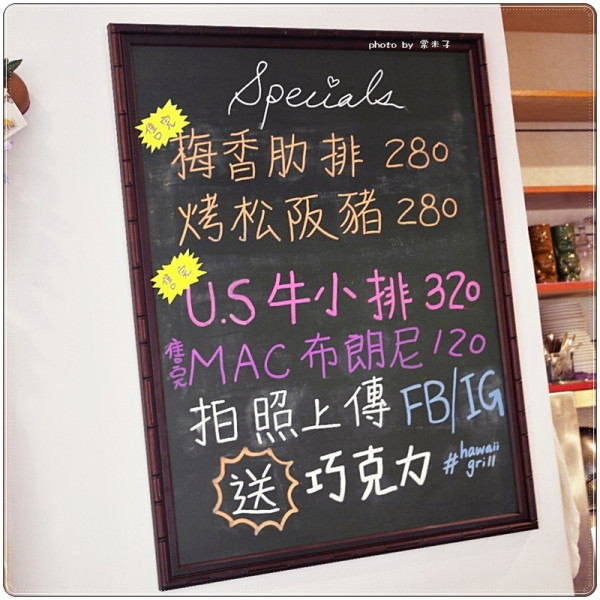 photo by 棠米子
Specials
售完
梅香肋排 280
烤松阪豬 280
售完
U.S牛小排 320
售完 MAC布朗尼 120
拍照上傳 FB/IG
送 巧克力 #hawaii grill